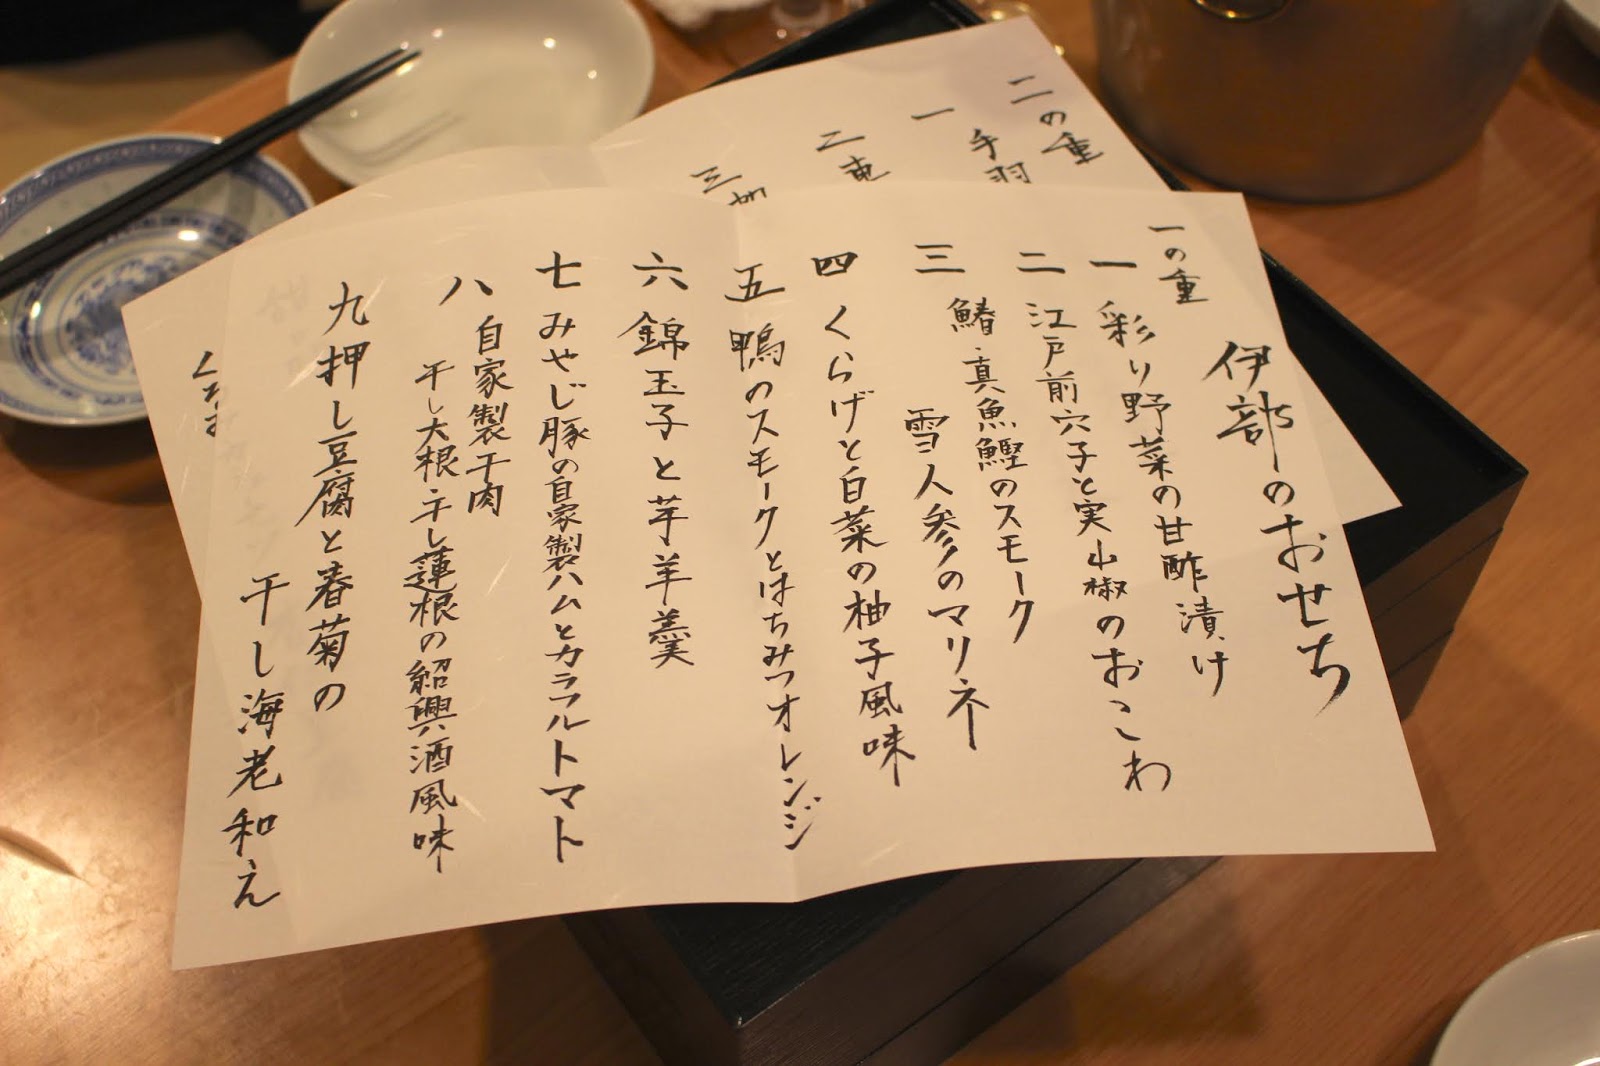 伊部のおせち
一の重
一 彩り野菜の甘酢漬け
二 江戸前穴子と実山椒のおこわ
三 鰆・真魚鰹のスモーク
雪人参のマリネ
四 くらげと白菜の柚子風味
五 鴨のスモークとはちみつオレンジ
六 錦玉子と芋羊羹
七 みやじ豚の自家製ハムとカラフルトマト
八 自家製干肉
干し大根・干し蓮根の紹興酒風味
九 押し豆腐と春菊の
干し海老和え
二の重
一 手羽
二
三